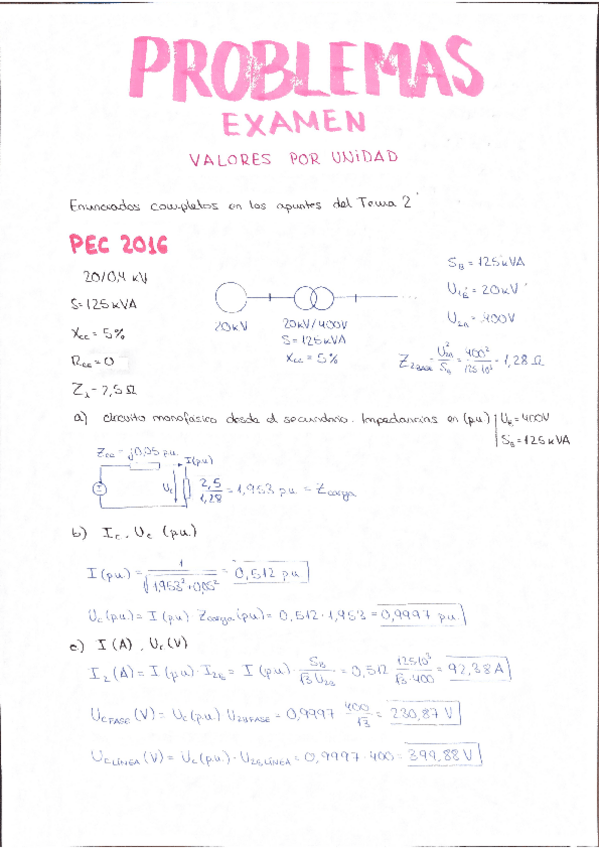 PROBLEMAS
EXAMEN
VALORES POR UNIDAD
Enunciados completos en los apuntes del Tema 2
PEC 2016
20/0,4 kV
S = 125 kVA
Xcc = 5%
Rcc = 0
Z₂ = 2,5 Ω
20kV
20kV/400V
S = 125kVA
Xcc = 5%
S_B = 125kVA
U_1B = 20kV
U_2B = 400V
Z_2BASE = U²_2B / S_B = 400² / 125·10³ = 1,28 Ω
a) Circuito monofásico desde el secundario. Impedancias en (pu) | U_B = 400V
S_B = 125 kVA
Zcc = j0,05 p.u.
I(pu)
Uc
2,5 / 1,28 = 1,953 p.u. = Zcarga
b) Ic, Uc (p.u.)
I (p.u.) = 1 / √(1,953² + 0,05²) = 0,512 p.u.
Uc (p.u.) = I (p.u) · Zcarga (p.u) = 0,512 · 1,953 = 0,9997 p.u.
c) I (A), Uc (V)
I₂ (A) = I (p.u) · I_2B = I (p.u) · S_B / √3 U_2B = 0,512 · 125·10³ / √3·400 = 92,38 A
Uc FASE (V) = Uc (p.u.) · U_2B FASE = 0,9997 · 400 / √3 = 230,87 V
Uc LÍNEA (V) = Uc (p.u.) · U_2B LÍNEA = 0,9997 · 400 = 399,88 V